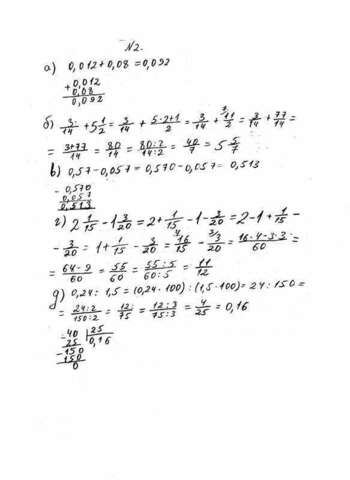 N2.
а) 0,012+0,08=0,092
+0,012
0,08
0,092
б) 3/14 + 5 1/2 = 3/14 + 5·2+1/2 = 3/14 + 11/2 = 3/14 + 77/14 =
= 3+77/14 = 80/14 = 80:2/14:2 = 40/7 = 5 5/7
в) 0,57-0,057=0,570-0,057=0,513
-0,570
0,057
0,513
г) 2 1/15 - 1 3/20 = 2+ 1/15 -1- 3/20 = 2-1+ 1/15 -
- 3/20 = 1+ 1/15 - 3/20 = 16/15 - 3/20 = 16·4-3·3/60 =
= 64-9/60 = 55/60 = 55:5/60:5 = 11/12
д) 0,24:1,5=(0,24·100):(1,5·100)=24:150=
= 24:2/150:2 = 12/75 = 12:3/75:3 = 4/25 = 0,16
-40 25
25 0,16
-150
150
0